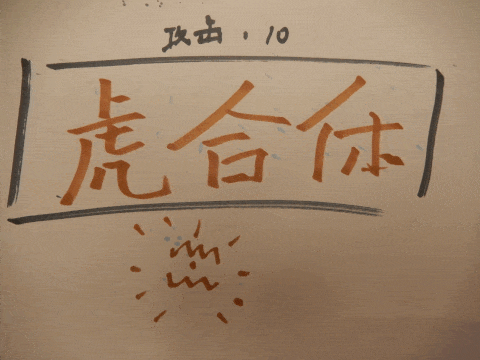 攻击·10
虎合体